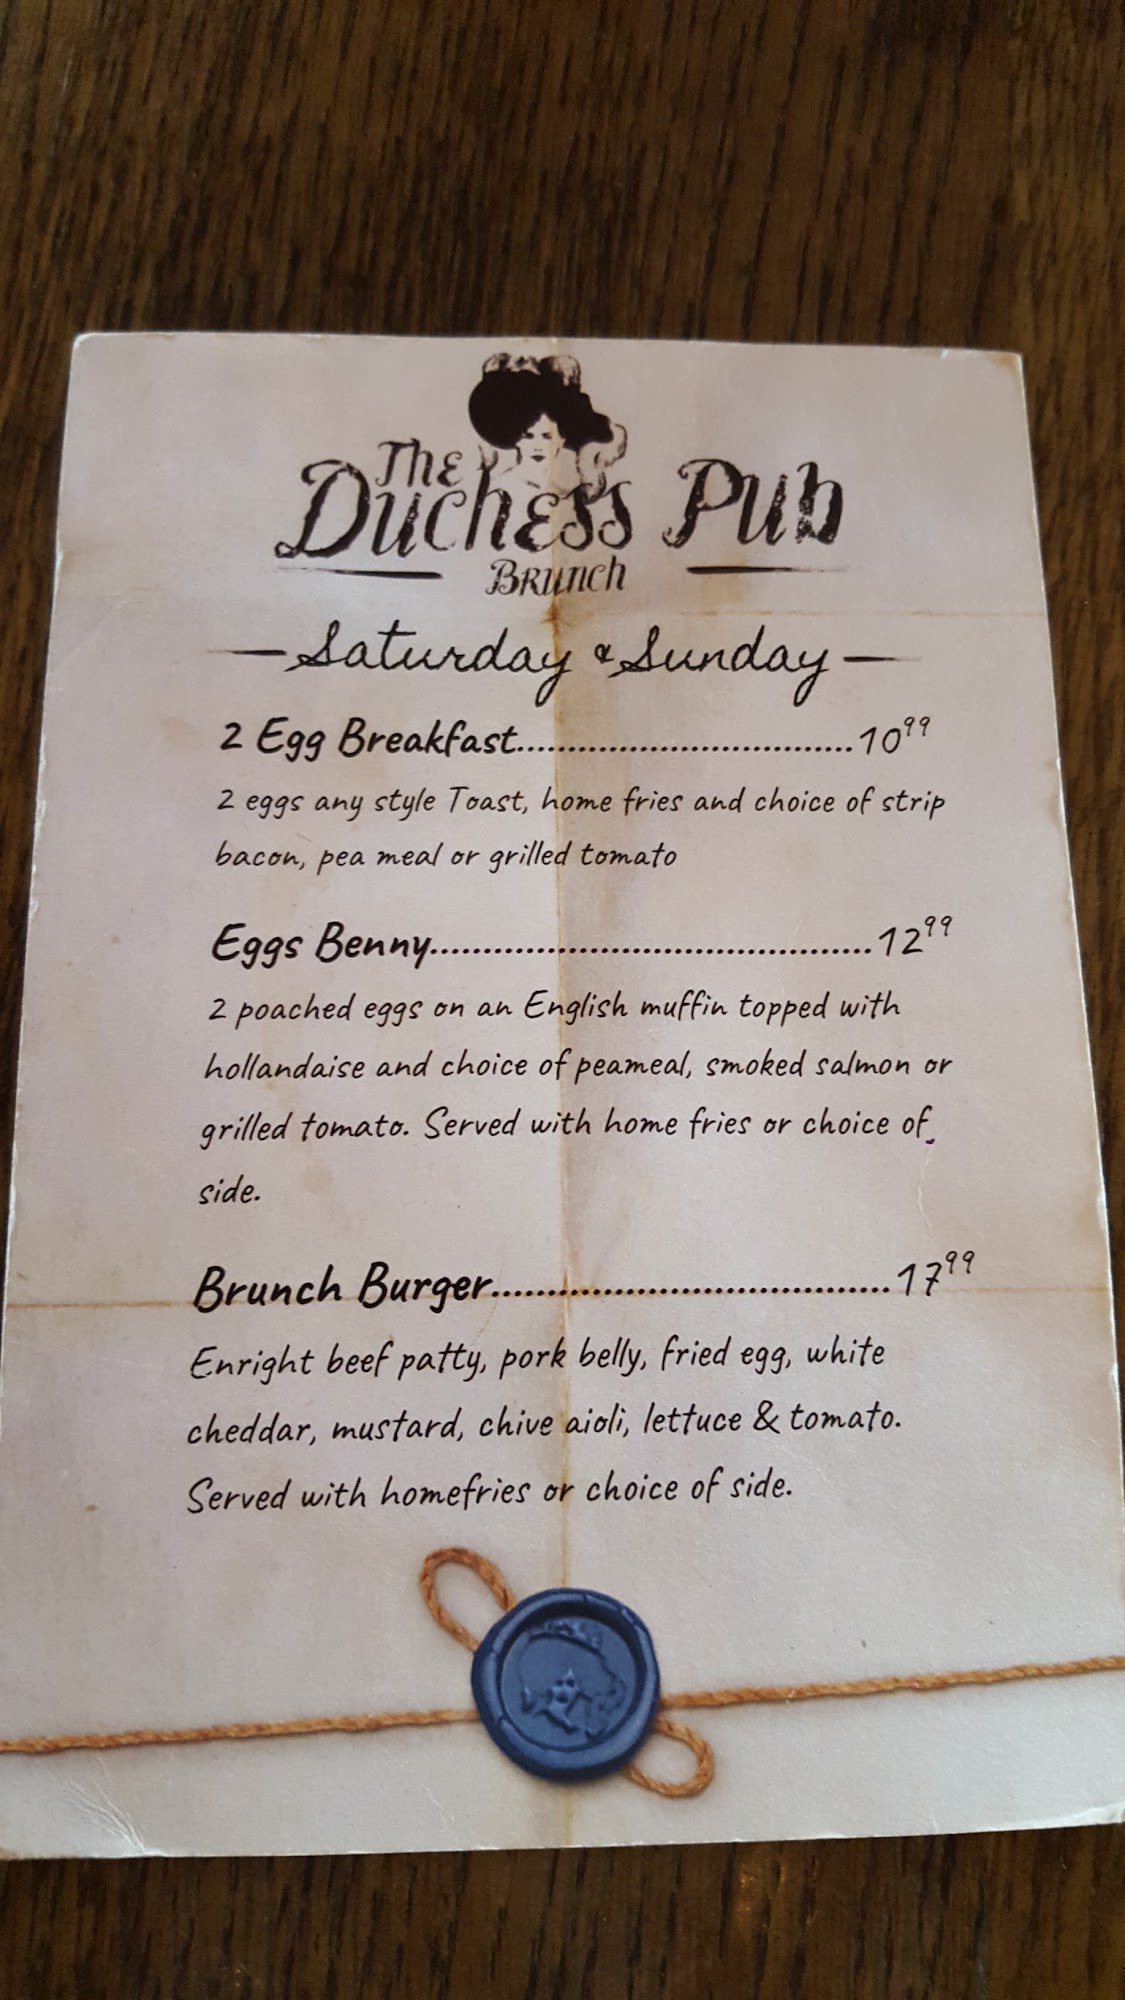 The
Duchess Pub
Brunch
Saturday & Sunday
2 Egg Breakfast....................................10⁹⁹
2 eggs any style Toast, home fries and choice of strip
bacon, pea meal or grilled tomato
Eggs Benny...............................................12⁹⁹
2 poached eggs on an English muffin topped with
hollandaise and choice of peameal, smoked salmon or
grilled tomato. Served with home fries or choice of
side.
Brunch Burger..........................................17⁹⁹
Enright beef patty, pork belly, fried egg, white
cheddar, mustard, chive aioli, lettuce & tomato.
Served with homefries or choice of side.